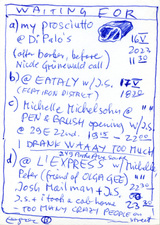 WAITING FOR
a) my prosciutto
@ Di Palo's 16 V
(after barber, before 2023
Nicole Grünewald call) 11 30
b) @ EATALY w/ J.S. 17 V
(FLATIRON DISTRICT) 18 20
c) Michelle Michelsohn @
PEN & BRUSH opening w/ J.S.
@ 29 E 22nd. 22 00
I DRANK WAAAY TOO MUCH
d) @ L'EXPRESS w/ Michelle
Peter (friend of OLGA GEE)
Josh Mailman + J.S. 22 30
J.S. + I took a cab home
- TOO MANY CRAZY PEOPLE on
street